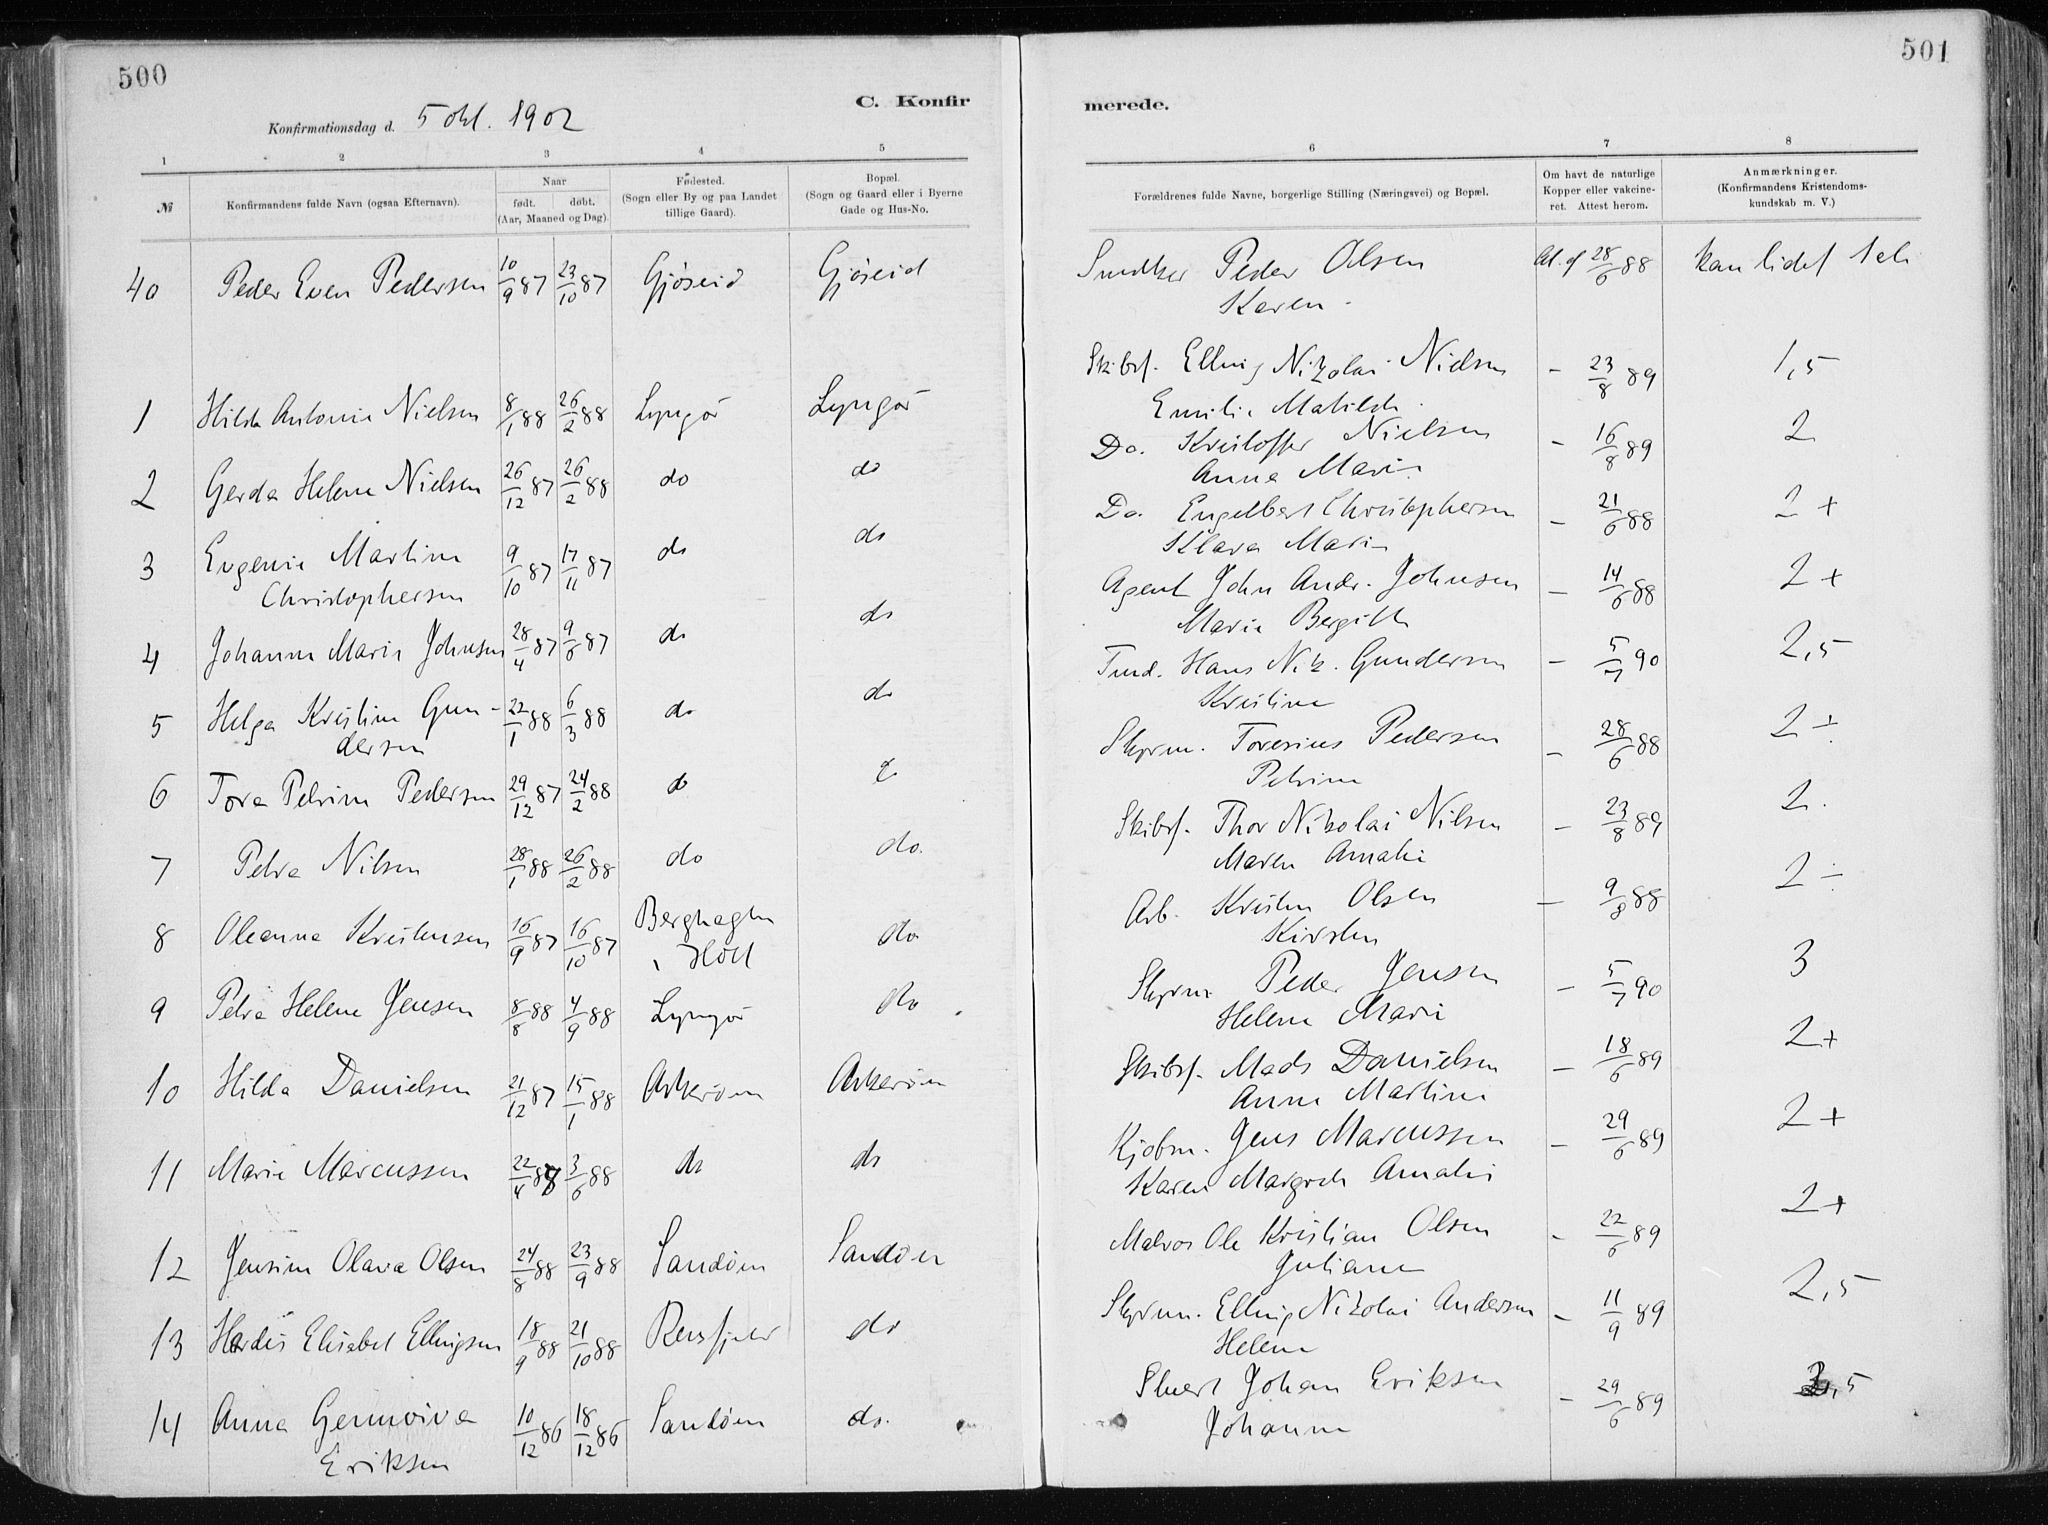 500
501
C. Konfir
merede.
Konfirmationsdag d. 5 okt. 1902
1 2 3 4 5 6 7 8
№ Konfirmandens fulde Navn (ogsaa Efternavn). Naar født. døbt. (Aar, Maaned og Dag). Fødested. (Sogn eller By og paa Landet tillige Gaard). Bopæl. (Sogn og Gaard eller i Byerne Gade og Hus-No. Forældrenes fulde Navne, borgerlige Stilling (Næringsvei) og Bopæl. Om havt de naturlige Kopper eller vakcineret. Attest herom. Anmærkninger. (Konfirmandens Kristendomskundskab m. V.)
40 Peder Even Pedersen 10/9 87 23/10 87 Gjøseid Gjøseid Peder Olsen 28/6 88 kan lidet
Karen
1 Hilda Antonie Nielsen 8/1 88 26/2 88 Lyngør Lyngør Skibsf. Elling Nikolai Nielsen – 23/8 89 1,5
Emilie Matilde
2 Gerda Helene Nielsen 26/12 87 26/2 88 do do Do. Kristoffer Nielsen – 16/8 89 2
Anna Marie
3 Eugenie Martine 9/10 87 17/11 87 do do Do. Engelbert Christophersen – 21/6 88 2+
Christophersen Klara Marie
4 Johanne Marie Johnsen 28/4 87 9/6 87 do do Agent John Andr. Johnsen – 14/6 88 2+
Marie Bergitte
5 Helga Kristine Gun- 22/1 88 6/3 88 do do Hans Nik. Gundersen – 5/7 90 2,5
dersen Kristine
6 Tora Petrine Pedersen 29/12 87 24/2 88 do do Styrm. Toresius Pedersen – 28/6 88 2÷
Petrine
7 Petra Nilsen 28/1 88 26/2 88 do do. Skibsf. Thor Nikolai Nilsen – 23/8 89 2.
Maren Amalie
8 Oleanna Kristensen 16/9 87 16/10 87 i Holt do Arb. Kristen Olsen – 9/8 88 2÷
Kirsten
9 Petra Helene Jensen 8/8 88 4/9 88 Lyngør do Styrm Peder Jensen – 5/7 90 3
Helene Marie
10 Hilda Danielsen 21/12 87 15/1 88 Askerøen Askerøen Skibsf. Mads Danielsen – 18/6 89 2+
Anne Martine
11 Marie Marcussen 22/4 88 3/6 88 do do Kjøbm. Jens Marcussen – 29/6 89 2+
Karen Margrete Amalie
12 Jensine Olava Olsen 24/8 88 23/9 88 Sandøen Sandøen Matros Ole Kristian Olsen – 22/6 89 2+
Juliane
13 Hardis Elisabet Ellingsen 18/9 88 21/10 88 do Styrm. Elling Nikolai Andersen – 11/9 89 2,5
Helene
14 Anna Genoviva 10/12 86 18/12 86 Sandøen do. Stuert Johan Eriksen – 29/6 89 3,5
Eriksen Johanne